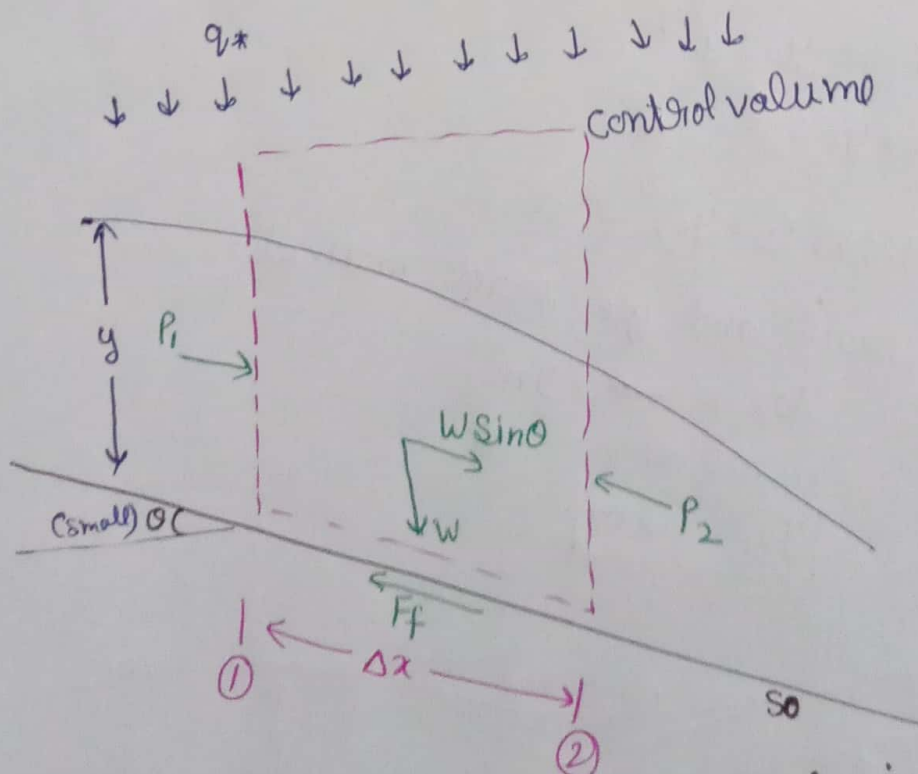 q*
Control valume
y
P₁
WSinθ
W
P₂
(small) θ
Ff
Δx
①
②
So